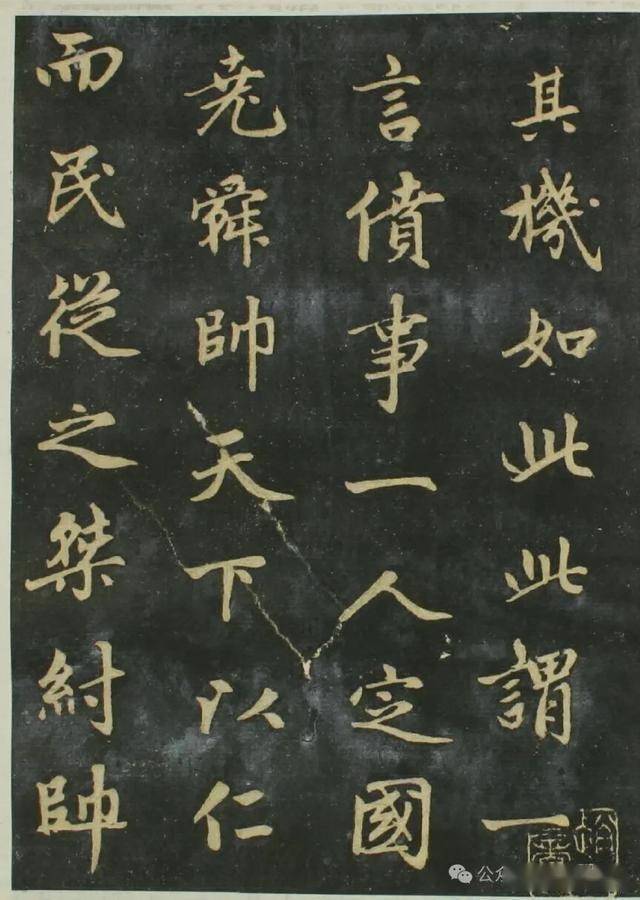 其機如此此謂一
言僨事一人定國
堯舜帥天下以仁
而民從之桀紂帥
公众